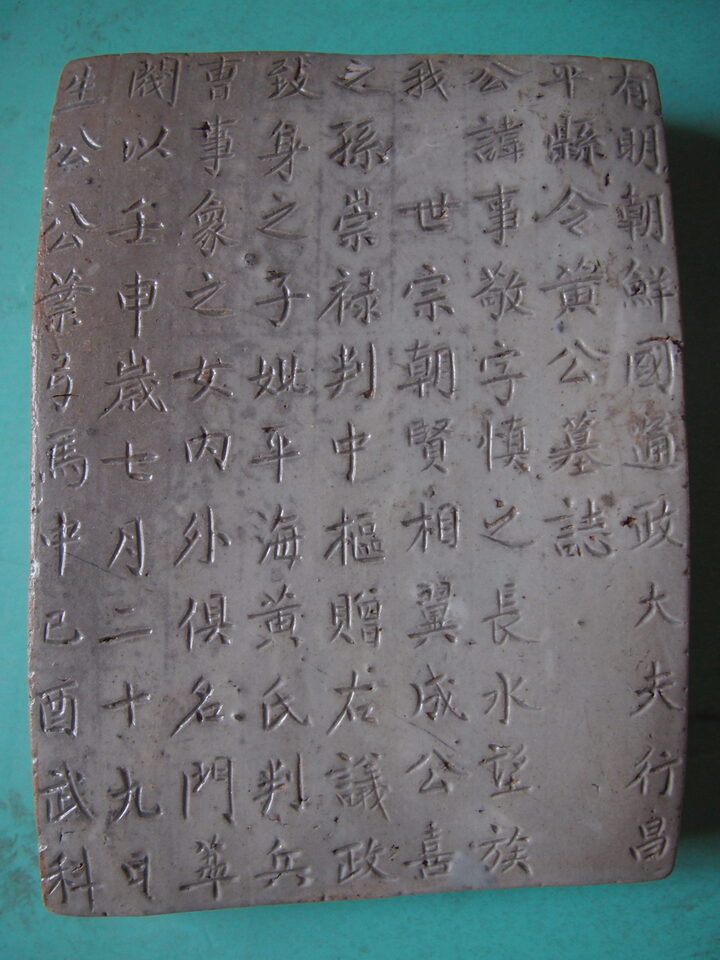 有明朝鮮國通政大夫行昌
平縣令黃公墓誌
公諱事敬字愼之長水望族
我世宗朝賢相翼成公喜
之孫崇禄判中樞贈右議政
致身之子妣平海黃氏判兵
曹事象之女內外俱名門華
閥以壬申歲七月二十九日
生公公業弓馬中己酉武科